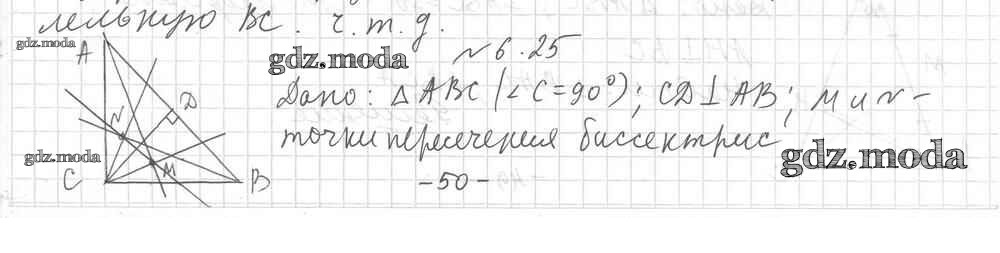 лельную BC. ч.т.д.
gdz.moda
A
gdz.moda
N 6.25
Дано: △ABC (∠C=90°); CD⊥AB; M и N -
N
D
точки пересечения биссектрис
gdz.moda
gdz.moda
C
M
B
-50-